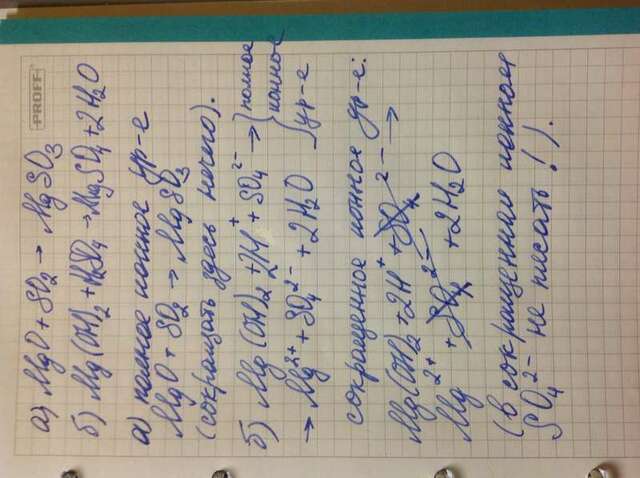 PROFF
а) MgO + SO₂ → MgSO₃
б) Mg(OH)₂ + H₂SO₄ → MgSO₄ + 2H₂O
а) полное ионное ур-е
MgO + SO₂ → MgSO₃
(сокращать здесь нечего).
б) Mg(OH)₂ + 2H⁺ + SO₄²⁻ → { полное
→ Mg²⁺ + SO₄²⁻ + 2H₂O { ионное
ур-е
сокращенное ионное ур-е:
Mg(OH)₂ + 2H⁺ + SO₄²⁻ →
Mg²⁺ + SO₄²⁻ + 2H₂O
(в сокращенном ионном
SO₄²⁻ не писать!).